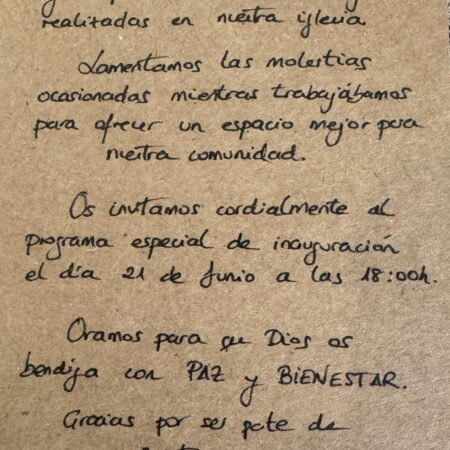 realizadas en nuestra iglesia.
Lamentamos las molestias
ocasionadas mientras trabajábamos
para ofrecer un espacio mejor para
nuestra comunidad.
Os invitamos cordialmente al
programa especial de inauguración
el día 21 de Junio a las 18:00h.
Oramos para que Dios os
bendiga con PAZ y BIENESTAR.
Gracias por ser parte de